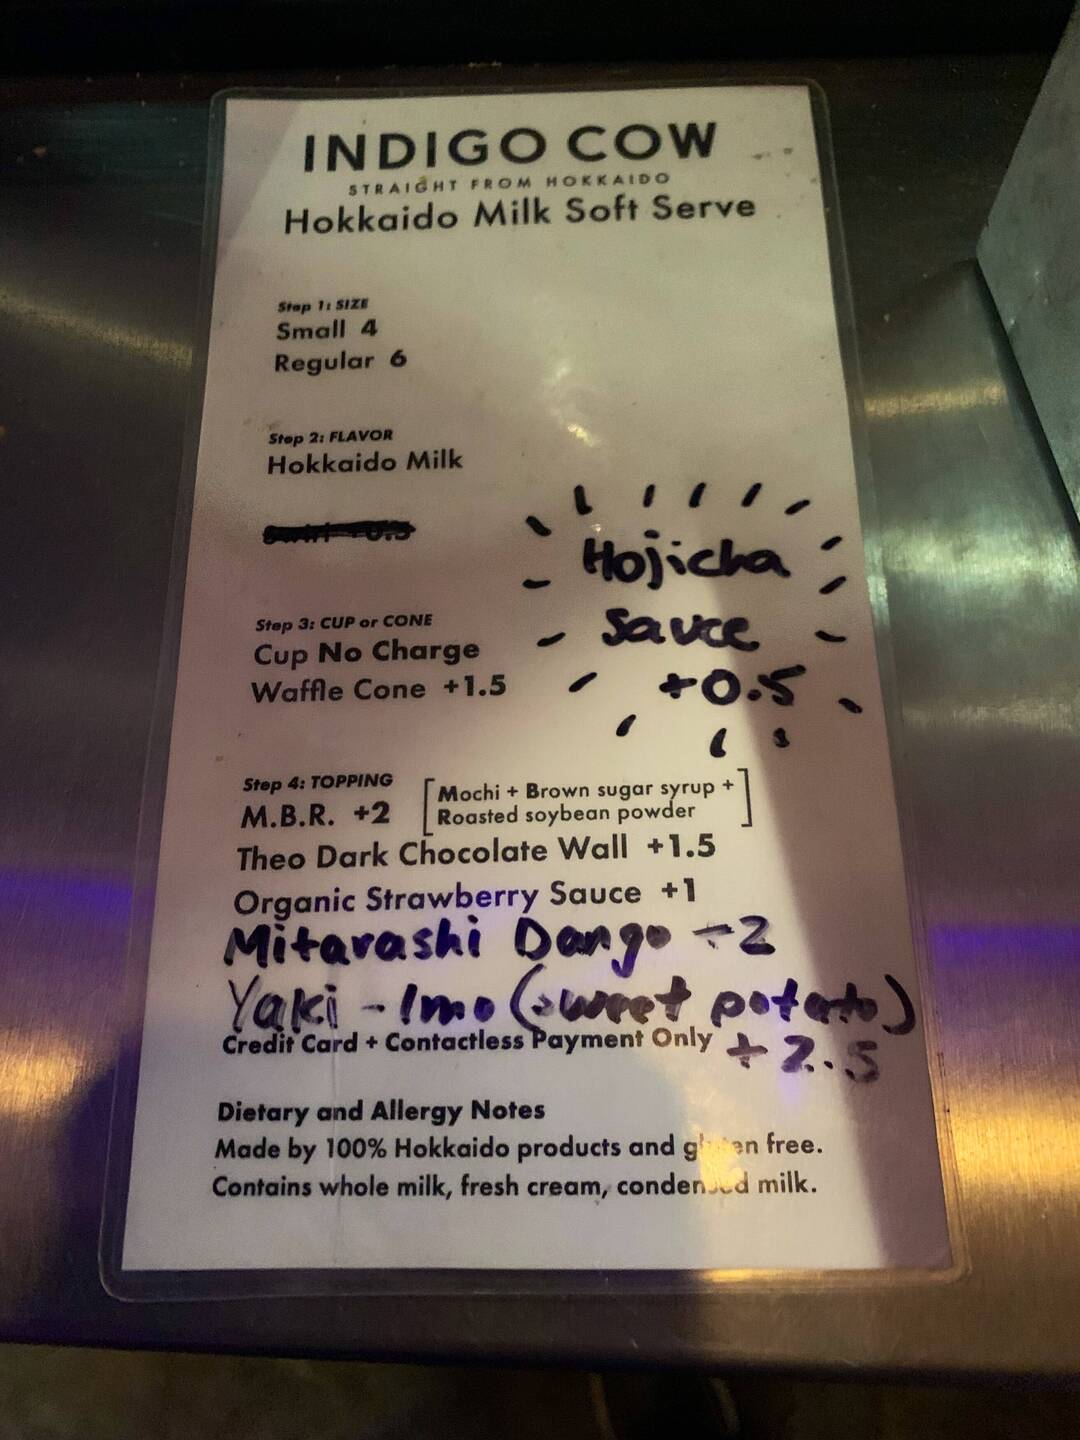 INDIGO COW
STRAIGHT FROM HOKKAIDO
Hokkaido Milk Soft Serve
Step 1: SIZE
Small 4
Regular 6
Step 2: FLAVOR
Hokkaido Milk
Hojicha
Sauce
+0.5
Step 3: CUP or CONE
Cup No Charge
Waffle Cone +1.5
Step 4: TOPPING
M.B.R. +2 [Mochi + Brown sugar syrup +
Roasted soybean powder]
Theo Dark Chocolate Wall +1.5
Organic Strawberry Sauce +1
Mitarashi Dango +2
Yaki-Imo (sweet potato)
+2.5
Credit Card + Contactless Payment Only
Dietary and Allergy Notes
Made by 100% Hokkaido products and gluten free.
Contains whole milk, fresh cream, condensed milk.